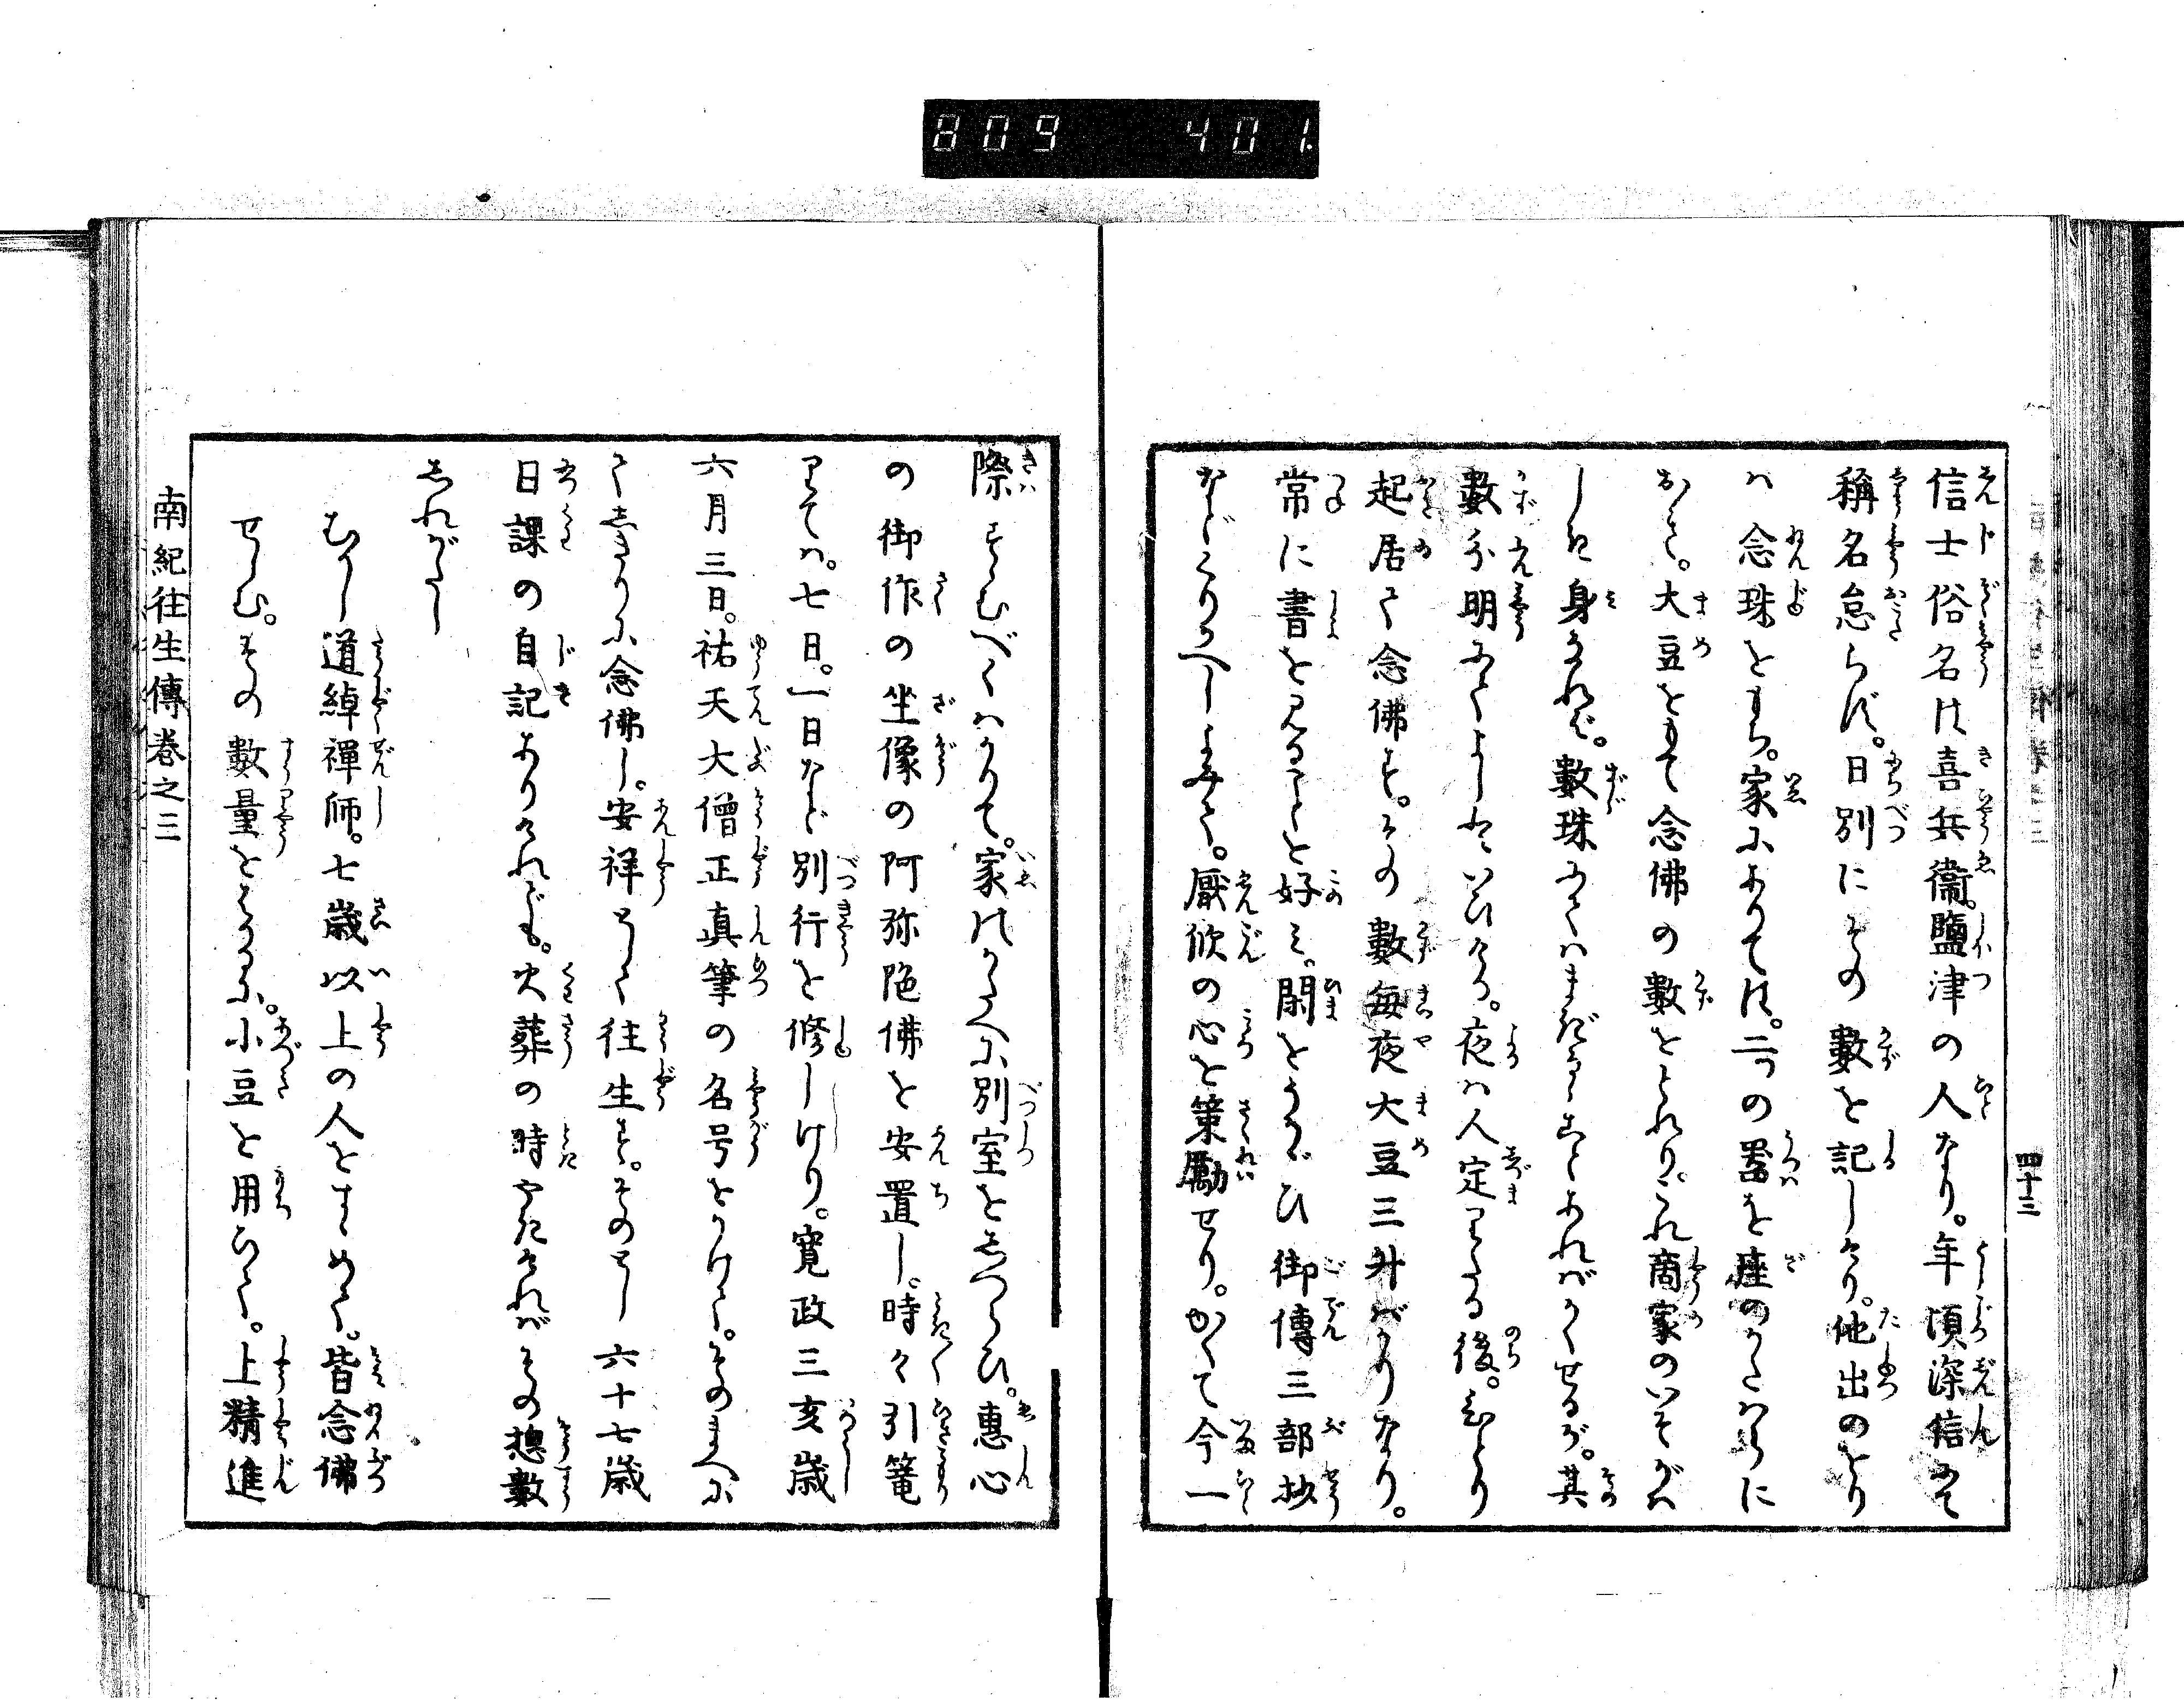 809 401.
四十三
信士俗名は喜兵衞。鹽津の人なり。年頃深信にて
稱名怠らず。日別にその數を記しけり。他出のをり
は念珠をもち。家にありては。二つの器を座のかたはらに
おきて。大豆をもて念佛の數をとれり。これ商家のいそがは
しき身なれば。數珠にてはまぎるゝことあればかくせるが。其
數分明にてよしとぞいひける。夜は人定りたる後。ひとり
起居て念佛す。その數每夜大豆三升ばかりなり。
常に書を見ることを好み。閑をうかゞひ御傳三部抄
などくりかへしよみて。厭欣の心を策勵せり。かくて今一
際すゝむべくはかりて。家のかたへに別室をしつらひ。惠心
の御作の坐像の阿弥陁佛を安置し。時々引篭
りては。七日。一日など別行を修しけり。寛政三亥歳
六月三日。祐天大僧正真筆の名号をかけて。そのまへに
てしきりに念佛し。安祥として往生す。そのとし六十七歳
日課の自記ありけれども。火葬の時やきければその摠數
しれがたし
むかし道綽禪師。七歳以上の人をすゝめて。皆念佛
せしむ。その數量をはかるに。小豆を用ひて。上精進
南紀往生傳卷之三